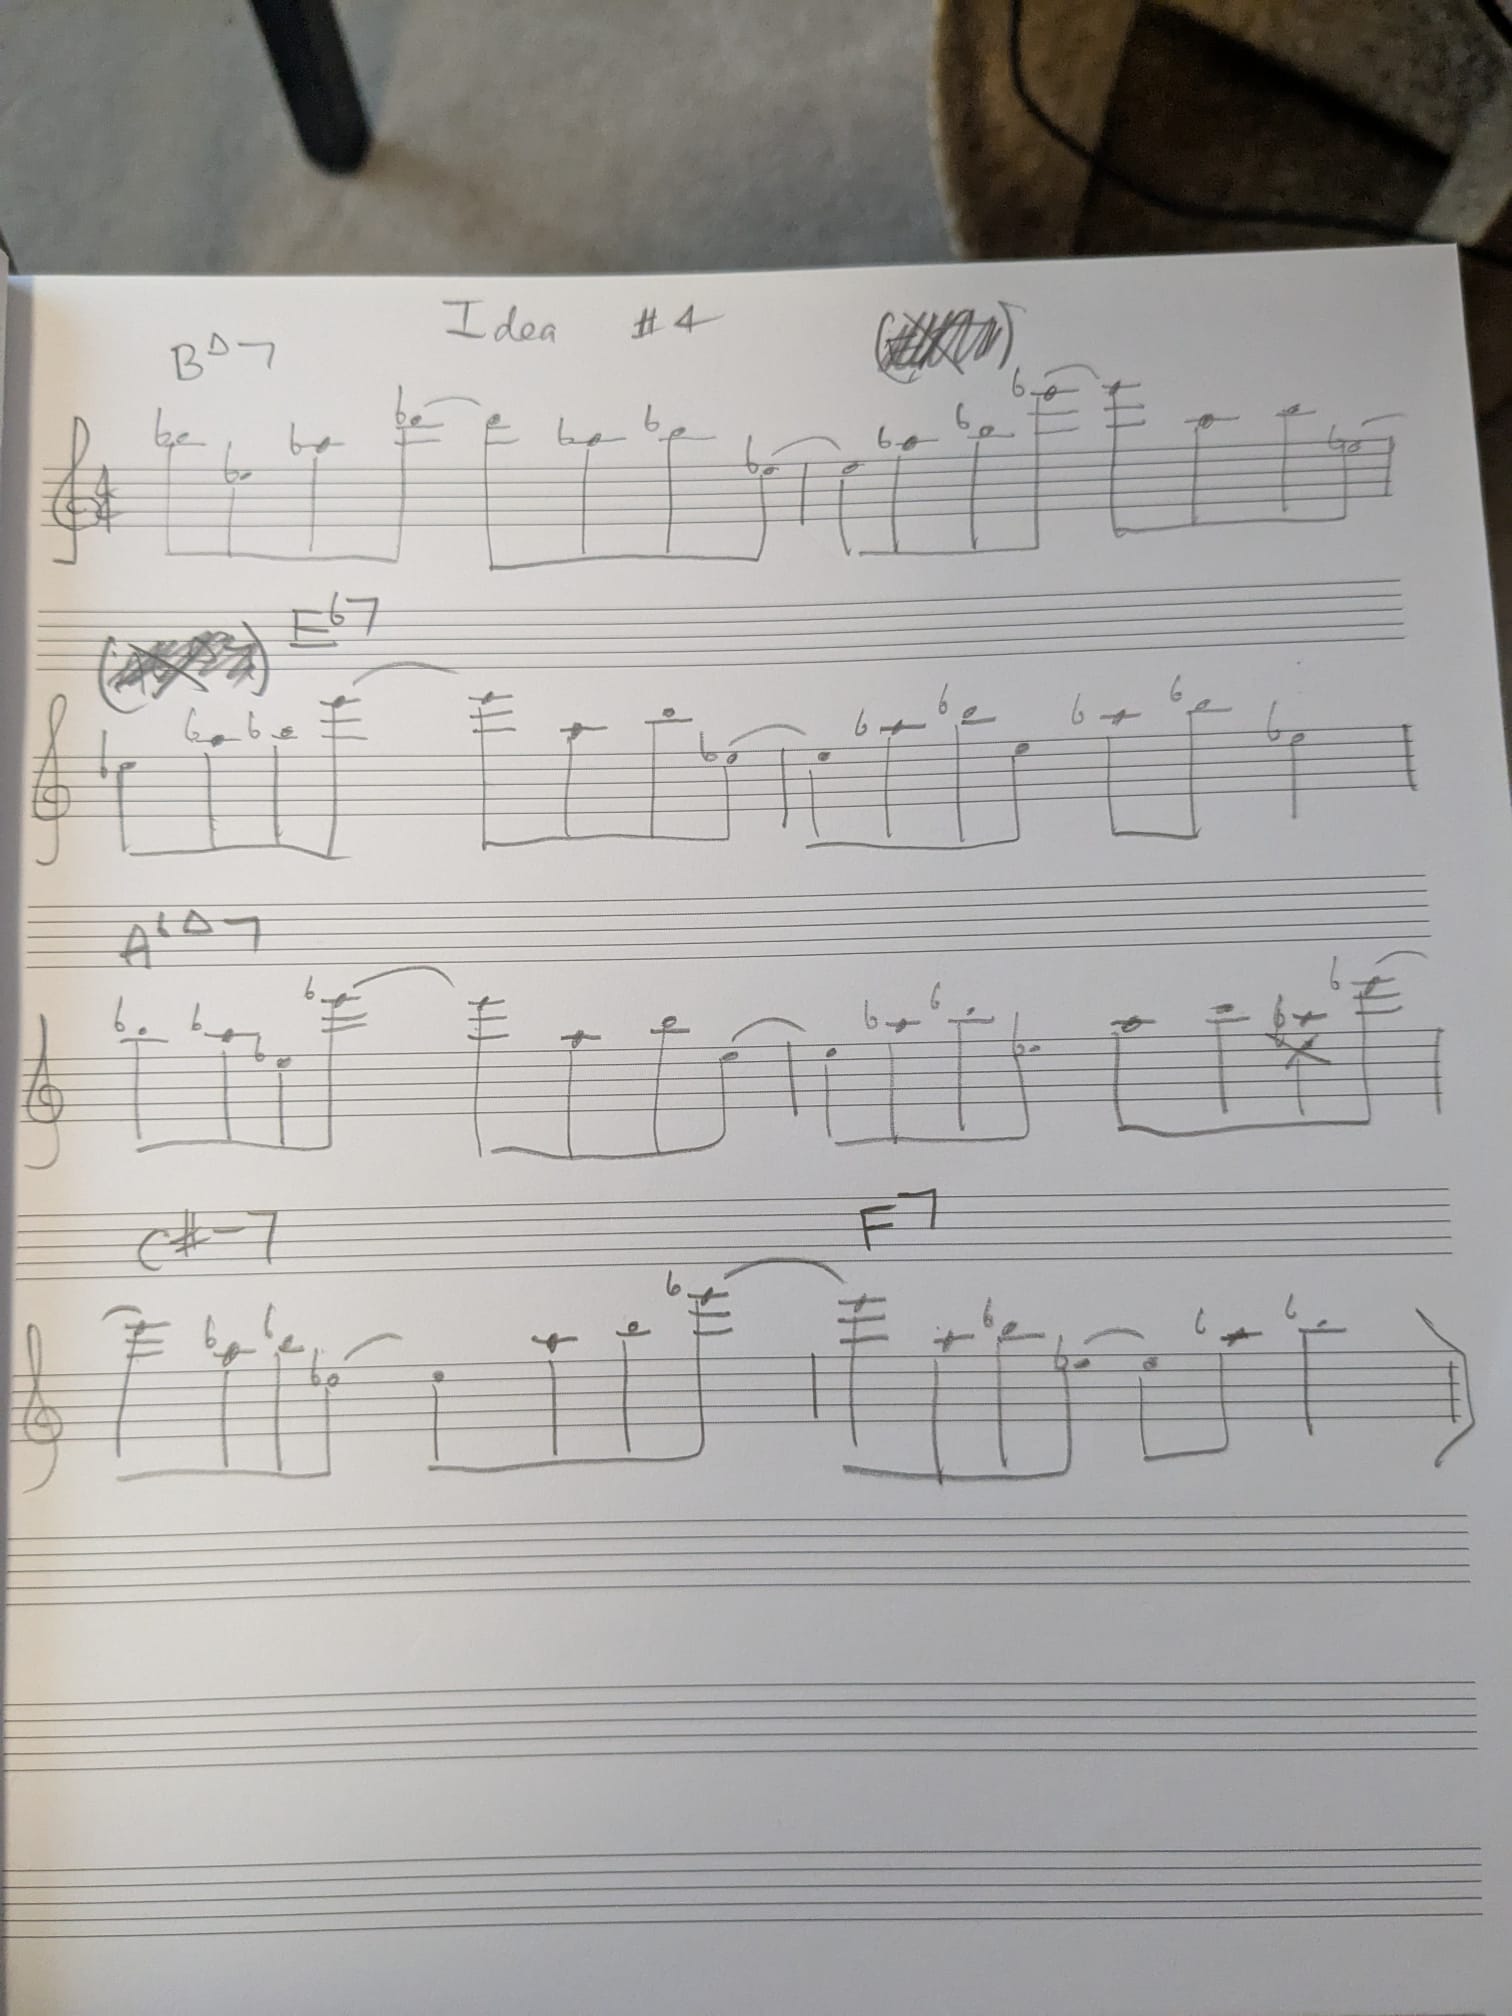 Idea #4
B△7
4
4
E♭7
A♭△7
C#-7 F7